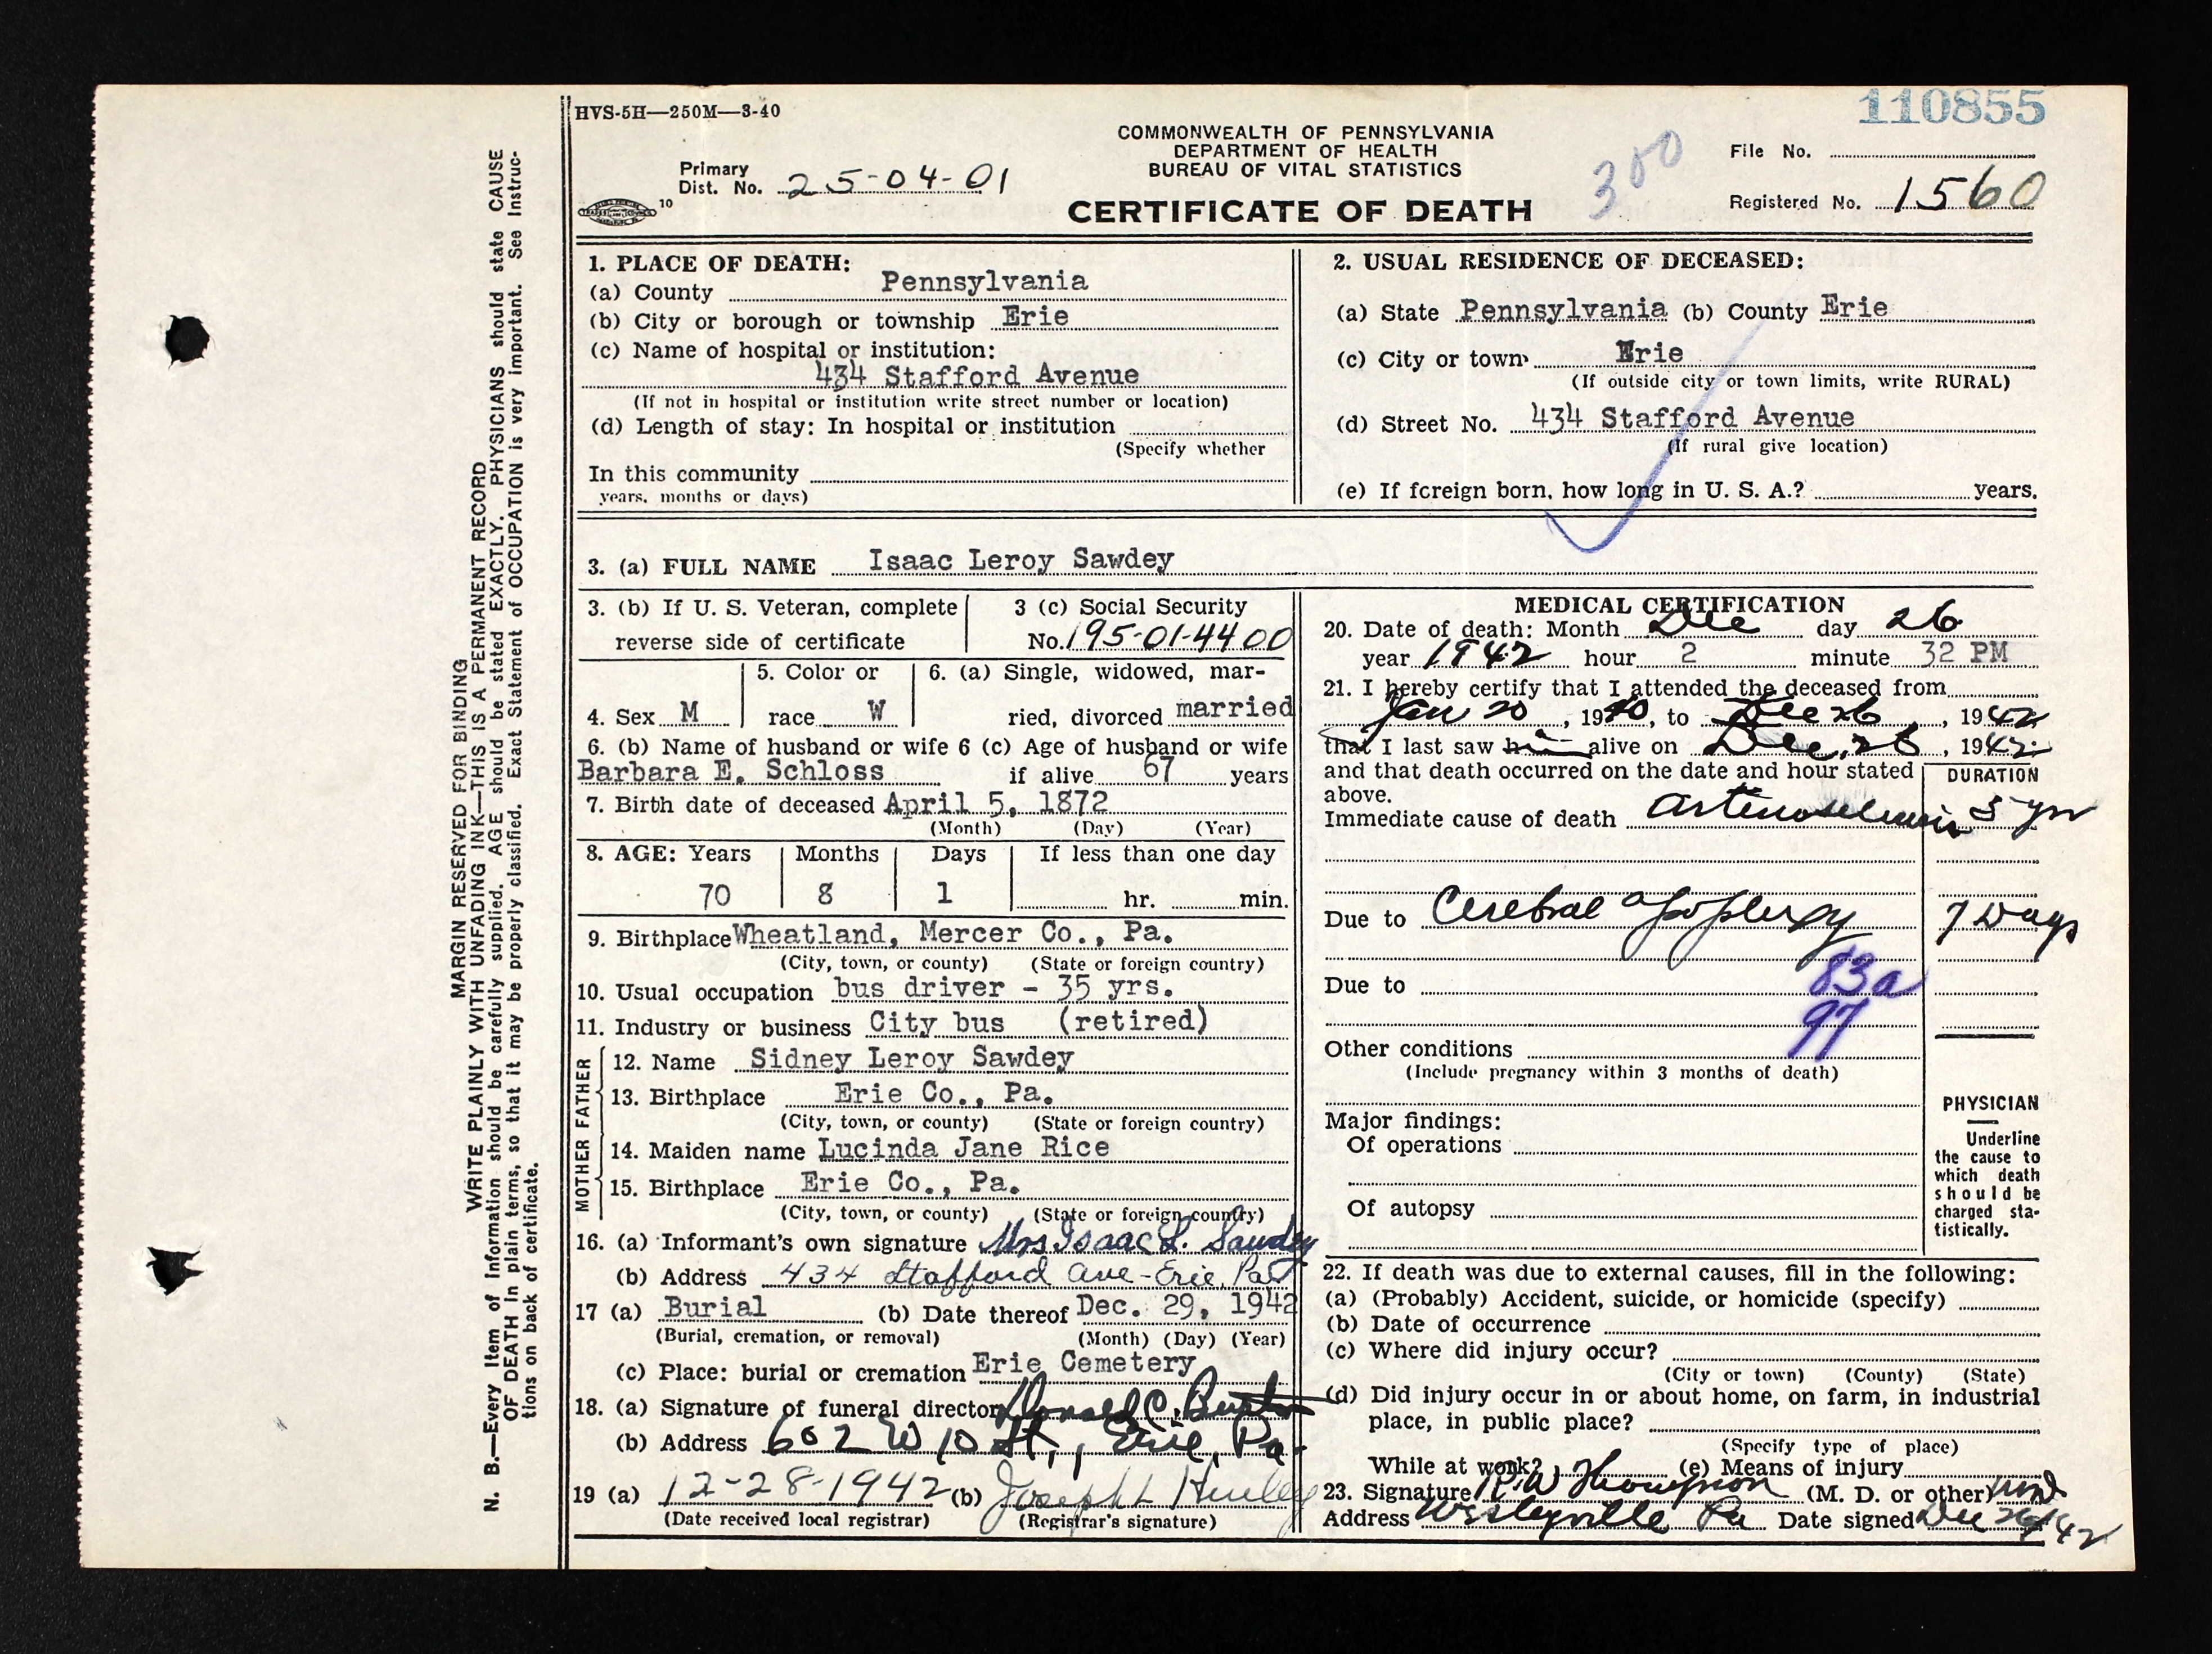 HVS-5H—250M—3-40
110855
COMMONWEALTH OF PENNSYLVANIA
DEPARTMENT OF HEALTH
BUREAU OF VITAL STATISTICS
CERTIFICATE OF DEATH
Primary
Dist. No. 25-04-01
10
300
File No.
Registered No. 1560
MARGIN RESERVED FOR BINDING
WRITE PLAINLY WITH UNFADING INK—THIS IS A PERMANENT RECORD
N. B.—Every Item of Information should be carefully supplied. AGE should be stated EXACTLY. PHYSICIANS should state CAUSE
OF DEATH in plain terms, so that it may be properly classified. Exact Statement of OCCUPATION is very important. See Instruc-
tions on back of certificate.
1. PLACE OF DEATH:
(a) County Pennsylvania
(b) City or borough or township Erie
(c) Name of hospital or institution:
434 Stafford Avenue
(If not in hospital or institution write street number or location)
(d) Length of stay: In hospital or institution
(Specify whether
In this community
years, months or days)
2. USUAL RESIDENCE OF DECEASED:
(a) State Pennsylvania (b) County Erie
(c) City or town Erie
(If outside city or town limits, write RURAL)
(d) Street No. 434 Stafford Avenue
(If rural give location)
(e) If foreign born, how long in U. S. A.? years.
3. (a) FULL NAME Isaac Leroy Sawdey
3. (b) If U. S. Veteran, complete
reverse side of certificate
3 (c) Social Security
No. 195-01-4400
4. Sex M
5. Color or
race W
6. (a) Single, widowed, mar-
ried, divorced married
6. (b) Name of husband or wife 6 (c) Age of husband or wife
Barbara E. Schloss if alive 67 years
7. Birth date of deceased April 5, 1872
(Month) (Day) (Year)
8. AGE: Years Months Days If less than one day
70 8 1 hr. min.
9. Birthplace Wheatland, Mercer Co., Pa.
(City, town, or county) (State or foreign country)
10. Usual occupation bus driver - 35 yrs.
11. Industry or business City bus (retired)
FATHER
12. Name Sidney Leroy Sawdey
13. Birthplace Erie Co., Pa.
(City, town, or county) (State or foreign country)
MOTHER
14. Maiden name Lucinda Jane Rice
15. Birthplace Erie Co., Pa.
(City, town, or county) (State or foreign country)
16. (a) Informant's own signature Mrs Isaac L. Sawdey
(b) Address 434 Stafford Ave - Erie, Pa
17 (a) Burial (b) Date thereof Dec. 29, 1942
(Burial, cremation, or removal) (Month) (Day) (Year)
(c) Place: burial or cremation Erie Cemetery
18. (a) Signature of funeral director Donald C. Burton
(b) Address 602 W 10 St., Erie, Pa.
19 (a) 12-28-1942 (b) Joseph L Hurley
(Date received local registrar) (Registrar's signature)
MEDICAL CERTIFICATION
20. Date of death: Month Dec day 26
year 1942 hour 2 minute 32 PM
21. I hereby certify that I attended the deceased from
Jan 20, 1940, to Dec 26, 1942
that I last saw him alive on Dec. 26, 1942
and that death occurred on the date and hour stated
above.
DURATION
Immediate cause of death Arteriosclerosis 5 yrs
Due to Cerebral apoplexy 7 Days
Due to
83a
97
Other conditions
(Include pregnancy within 3 months of death)
Major findings:
Of operations
Of autopsy
PHYSICIAN
Underline
the cause to
which death
should be
charged sta-
tistically.
22. If death was due to external causes, fill in the following:
(a) (Probably) Accident, suicide, or homicide (specify)
(b) Date of occurrence
(c) Where did injury occur?
(City or town) (County) (State)
(d) Did injury occur in or about home, on farm, in industrial
place, in public place?
(Specify type of place)
While at work? (e) Means of injury
23. Signature R. W Thompson (M. D. or other) MD
Address Wesleyville Pa Date signed Dec 26/42